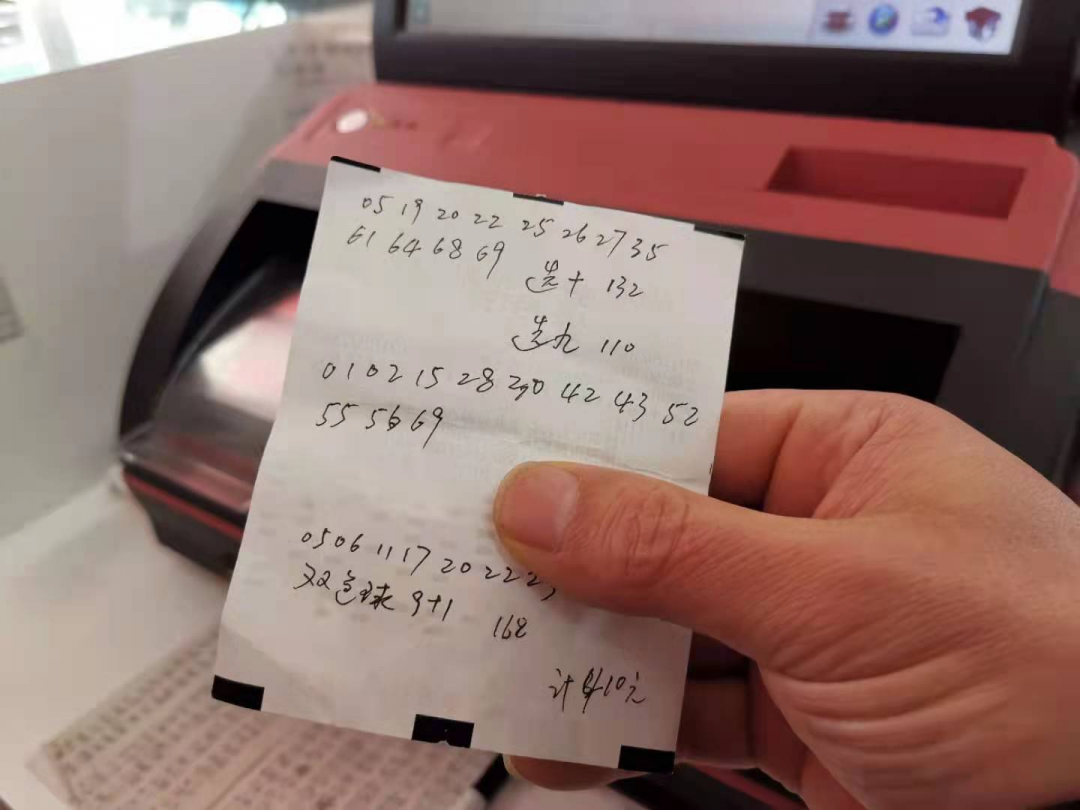 05 19 20 22 25 26 27 35
61 64 68 69 选十 132
选九 110
01 02 15 28 30 42 43 52
55 56 69
05 06 11 17 20 22 2
双色球 9+1 168
计410元